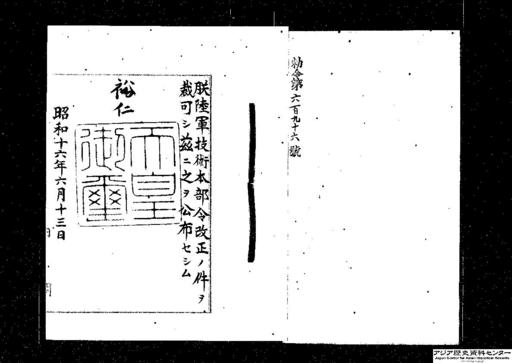 勅令第六百九十六號
朕陸軍技術本部令改正ノ件ヲ
裁可シ茲ニ之ヲ公布セシム
裕仁
天皇御璽
昭和十六年六月十三日
アジア歴史資料センター
Japan Center for Asian Historical Records